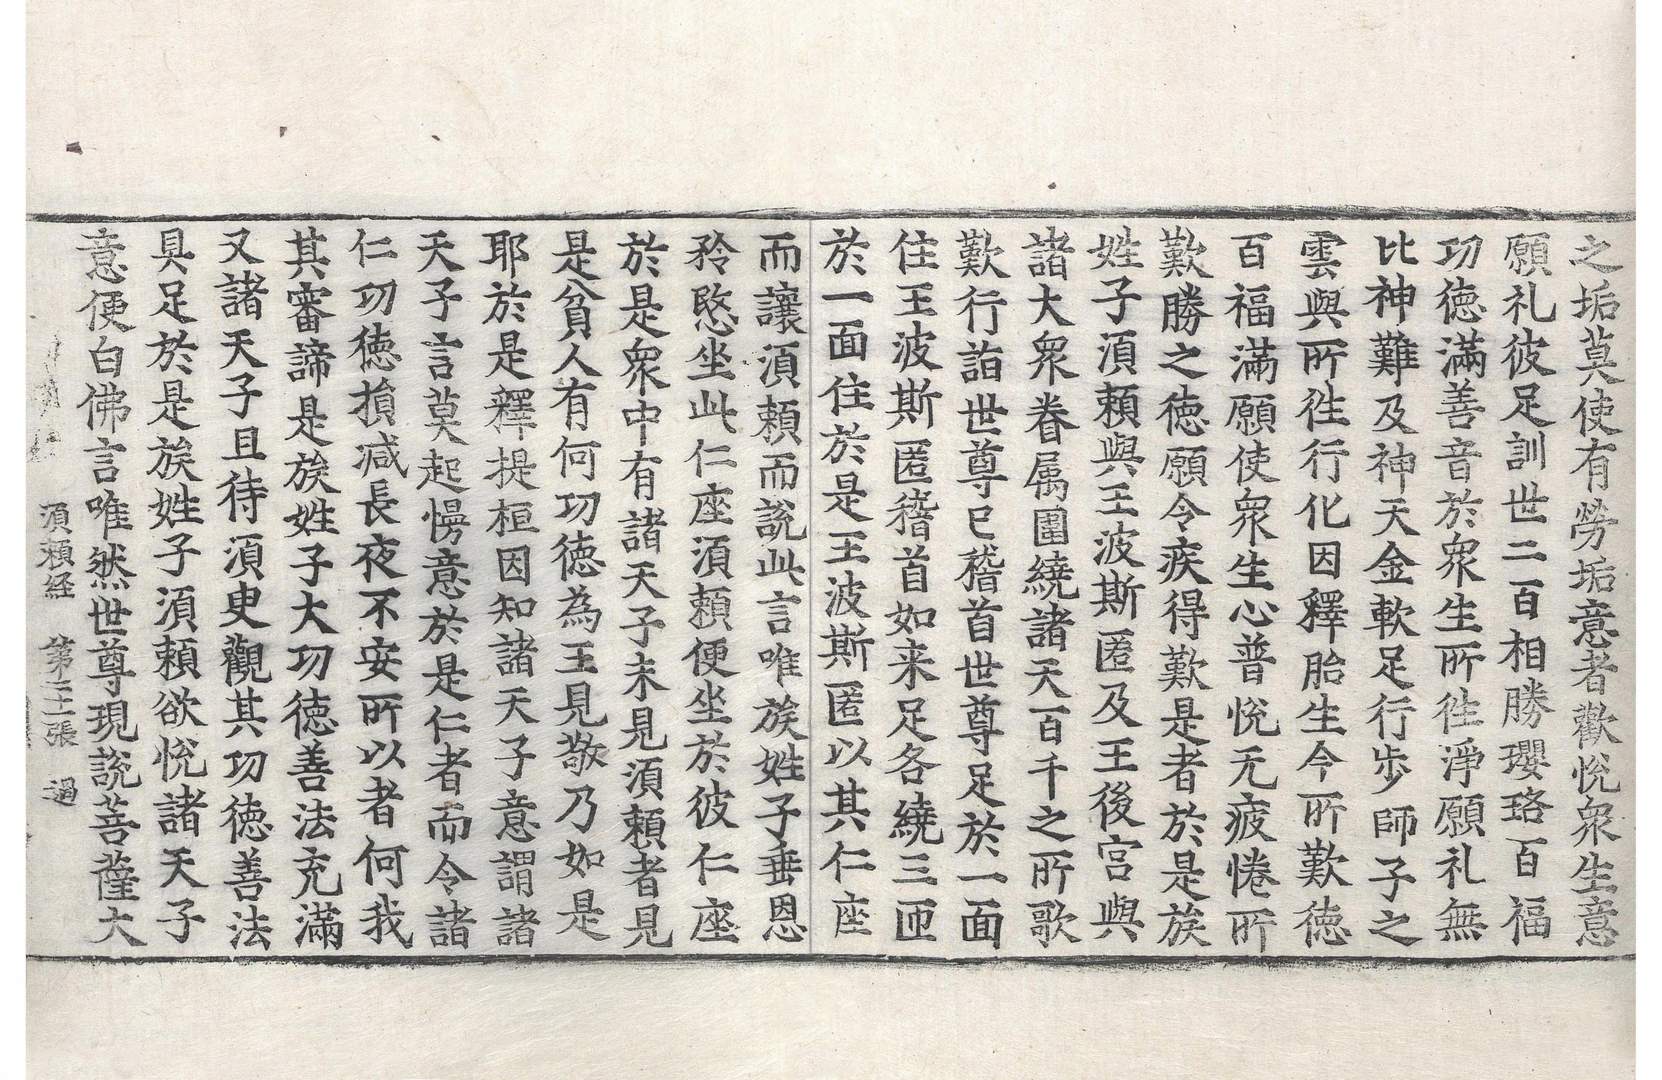 之垢莫使有勞垢意者歡悅衆生意
願礼彼足訓世二百相勝瓔珞百福
功德滿善音於衆生所徃淨願礼無
比神難及神天金軟足行步師子之
雲與所徃行化因釋胎生今所歎德
百福滿願使衆生心普悅无疲惓所
歎勝之德願令疾得歎是者於是族
姓子須賴與王波斯匿及王後宮與
諸大衆眷属圍繞諸天百千之所歌
歎行詣世尊已稽首世尊足於一面
住王波斯匿稽首如来足各繞三匝
於一面住於是王波斯匿以其仁座
而讓須賴而說此言唯族姓子垂恩
矜愍坐此仁座須賴便坐於彼仁座
於是衆中有諸天子未見須賴者見
是貧人有何功德為王見敬乃如是
耶於是釋提桓因知諸天子意謂諸
天子言莫起慢意於是仁者而令諸
仁功德損減長夜不安所以者何我
其審諦是族姓子大功德善法充滿
又諸天子且待須臾觀其功德善法
具足於是族姓子須賴欲悅諸天子
意便白佛言唯然世尊現說菩薩大
須賴経 第二十張 過